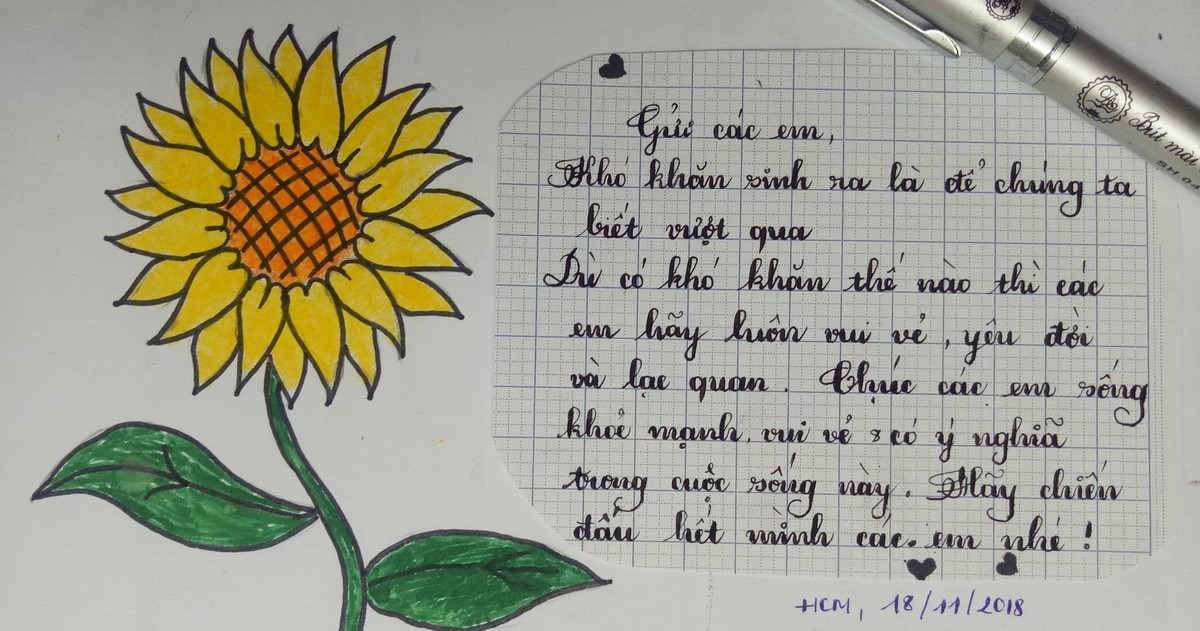 Gửi các em,
Khó khăn sinh ra là để chúng ta
biết vượt qua
Dù có khó khăn thế nào thì các
em hãy luôn vui vẻ, yêu đời
và lạc quan. Chúc các em sống
khoẻ mạnh, vui vẻ & có ý nghĩa
trong cuộc sống này. Hãy chiến
đấu hết mình các em nhé!
HCM, 18/11/2018
Bút mài
SH 0